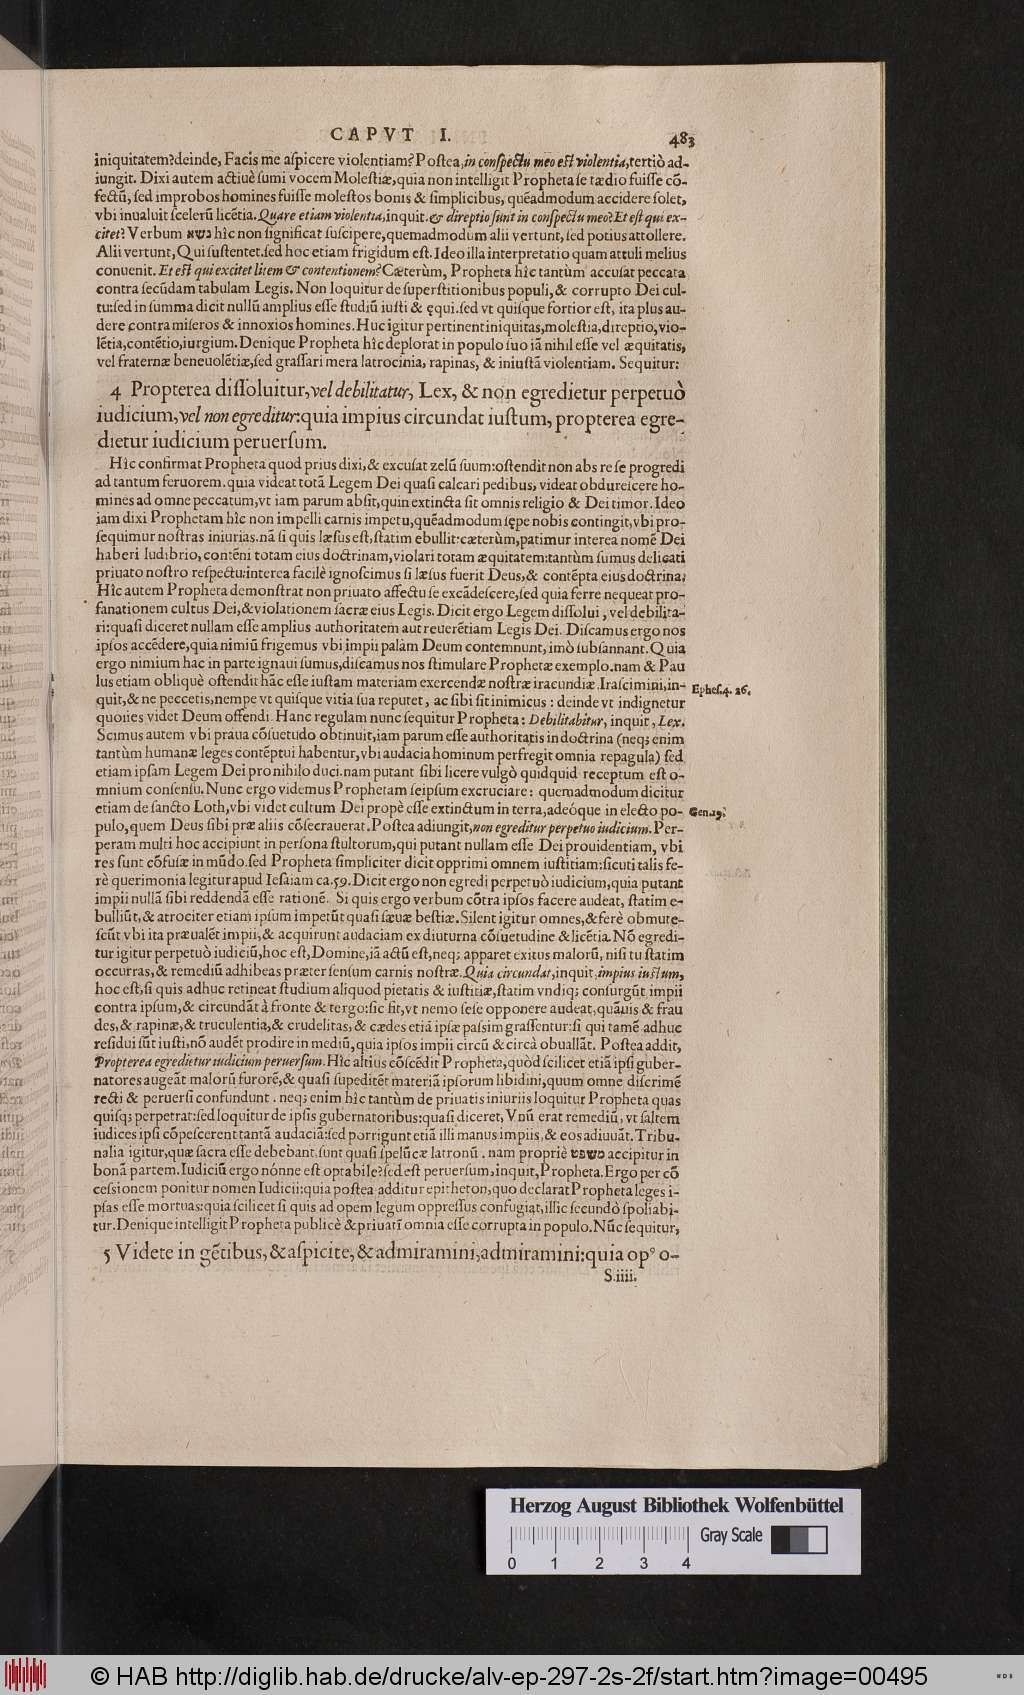 CAPVT I. 483
iniquitatem? deinde, Facis me aſpicere violentiam? Poſtea, in conſpectu meo eſt violentia, tertiò ad-
iungit. Dixi autem actiuè ſumi vocem Moleſtiæ, quia non intelligit Propheta ſe tædio fuiſſe cō-
fectū, ſed improbos homines fuiſſe moleſtos bonis & ſimplicibus, quēadmodum accidere ſolet,
vbi inualuit ſcelerū licētia. Quare etiam violentia, inquit, & direptio ſunt in conſpectu meo? Et eſt qui ex-
citet? Verbum נשא hîc non ſignificat ſuſcipere, quemadmodum alii vertunt, ſed potius attollere.
Alii vertunt, Qui ſuſtentet. ſed hoc etiam frigidum eſt. Ideo illa interpretatio quam attuli melius
conuenit. Et eſt qui excitet litem & contentionem? Cæterùm, Propheta hîc tantùm accuſat peccata
contra ſecūdam tabulam Legis. Non loquitur de ſuperſtitionibus populi, & corrupto Dei cul-
tu: ſed in ſumma dicit nullū amplius eſſe ſtudiū iuſti & ęqui. ſed vt quiſque fortior eſt, ita plus au-
dere contra miſeros & innoxios homines. Huc igitur pertinent iniquitas, moleſtia, direptio, vio-
lētia, contētio, iurgium. Denique Propheta hîc deplorat in populo ſuo iā nihil eſſe vel æquitatis,
vel fraternæ beneuolētiæ, ſed graſſari mera latrocinia, rapinas, & iniuſtā violentiam. Sequitur:
4 Propterea diſſoluitur, vel debilitatur, Lex, & non egredietur perpetuò
iudicium, vel non egreditur: quia impius circundat iuſtum, propterea egre-
dietur iudicium peruerſum.
Hîc confirmat Propheta quod prius dixi, & excuſat zelū ſuum: oſtendit non abs re ſe progredi
ad tantum feruorem. quia videat totā Legem Dei quaſi calcari pedibus, videat obdureſcere ho-
mines ad omne peccatum, vt iam parum abſit, quin extincta ſit omnis religio & Dei timor. Ideo
iam dixi Prophetam hîc non impelli carnis impetu, quēadmodum ſępe nobis contingit, vbi pro-
ſequimur noſtras iniurias. nā ſi quis læſus eſt, ſtatim ebullit: cæterùm, patimur interea nomē Dei
haberi ludibrio, contēni totam eius doctrinam, violari totam æquitatem: tantùm ſumus delicati
priuato noſtro reſpectu: interea facilè ignoſcimus ſi læſus fuerit Deus, & contēpta eius doctrina;
Hîc autem Propheta demonſtrat non priuato affectu ſe excādeſcere, ſed quia ferre nequeat pro-
fanationem cultus Dei, & violationem ſacræ eius Legis. Dicit ergo Legem diſſolui, vel debilita-
ri: quaſi diceret nullam eſſe amplius authoritatem aut reuerētiam Legis Dei. Diſcamus ergo nos
ipſos accēdere, quia nimiū frigemus vbi impii palàm Deum contemnunt, imò ſubſannant. Quia
ergo nimium hac in parte ignaui ſumus, diſcamus nos ſtimulare Prophetæ exemplo. nam & Pau
lus etiam obliquè oſtendit hāc eſſe iuſtam materiam exercendæ noſtræ iracundiæ. Iraſcimini, in- Epheſ.4. 26.
quit, & ne peccetis, nempe vt quiſque vitia ſua reputet, ac ſibi ſit inimicus: deinde vt indignetur
quoties videt Deum offendi. Hanc regulam nunc ſequitur Propheta: Debilitabitur, inquit, Lex.
Scimus autem vbi praua cōſuetudo obtinuit, iam parum eſſe authoritatis in doctrina (neq; enim
tantùm humanæ leges contēptui habentur, vbi audacia hominum perfregit omnia repagula) ſed
etiam ipſam Legem Dei pro nihilo duci. nam putant ſibi licere vulgò quidquid receptum eſt o-
mnium conſenſu. Nunc ergo videmus Prophetam ſeipſum excruciare: quemadmodum dicitur
etiam de ſancto Loth, vbi videt cultum Dei propè eſſe extinctum in terra, adeóque in electo po- Gen.19.
pulo, quem Deus ſibi præ aliis cōſecrauerat. Poſtea adiungit, non egreditur perpetuo iudicium. Per-
peram multi hoc accipiunt in perſona ſtultorum, qui putant nullam eſſe Dei prouidentiam, vbi
res ſunt cōfuſæ in mūdo. ſed Propheta ſimpliciter dicit opprimi omnem iuſtitiam: ſicuti talis fe-
rè querimonia legitur apud Ieſaiam ca.59. Dicit ergo non egredi perpetuò iudicium, quia putant
impii nullā ſibi reddendā eſſe rationē. Si quis ergo verbum cōtra ipſos facere audeat, ſtatim e-
bulliūt, & atrociter etiam ipſum impetūt quaſi ſæuæ beſtiæ. Silent igitur omnes, & ferè obmute-
ſcūt vbi ita præualēt impii, & acquirunt audaciam ex diuturna cōſuetudine & licētia. Nō egredi-
tur igitur perpetuò iudiciū, hoc eſt, Domine, iā actū eſt, neq; apparet exitus malorū, niſi tu ſtatim
occurras, & remediū adhibeas præter ſenſum carnis noſtræ. Quia circundat, inquit, impius iuſtum,
hoc eſt, ſi quis adhuc retineat ſtudium aliquod pietatis & iuſtitiæ, ſtatim vndiq; conſurgūt impii
contra ipſum, & circundāt à fronte & tergo: ſic fit, vt nemo ſeſe opponere audeat, quāuis & frau
des, & rapinæ, & truculentia, & crudelitas, & cædes etiā ipſæ paſsim graſſentur: ſi qui tamē adhuc
reſidui ſūt iuſti, nō audēt prodire in mediū, quia ipſos impii circū & circà obuallāt. Poſtea addit,
Propterea egredietur iudicium peruerſum. Hîc altius cōſcēdit Propheta, quòd ſcilicet etiā ipſi guber-
natores augeāt malorū furorē, & quaſi ſupeditēt materiā ipſorum libidini, quum omne diſcrimē
recti & peruerſi confundunt. neq; enim hîc tantùm de priuatis iniuriis loquitur Propheta quas
quiſq; perpetrat: ſed loquitur de ipſis gubernatoribus: quaſi diceret, Vnū erat remediū, vt ſaltem
iudices ipſi cōpeſcerent tantā audaciā: ſed porrigunt etiā illi manus impiis, & eos adiuuāt. Tribu-
nalia igitur, quæ ſacra eſſe debebant, ſunt quaſi ſpelūcæ latronū. nam propriè משפט accipitur in
bonā partem. Iudiciū ergo nónne eſt optabile? ſed eſt peruerſum, inquit, Propheta. Ergo per cō
ceſsionem ponitur nomen Iudicii: quia poſtea additur epitheton, quo declarat Propheta leges i-
pſas eſſe mortuas: quia ſcilicet ſi quis ad opem legum oppreſſus confugiat, illîc ſecundò ſpoliabi-
tur. Denique intelligit Propheta publicè & priuatī omnia eſſe corrupta in populo. Nūc ſequitur,
5 Videte in gētibus, & aſpicite, & admiramini, admiramini: quia opꝰ o-
S.iiii.
Herzog August Bibliothek Wolfenbüttel
Gray Scale
0 1 2 3 4
© HAB http://diglib.hab.de/drucke/alv-ep-297-2s-2f/start.htm?image=00495